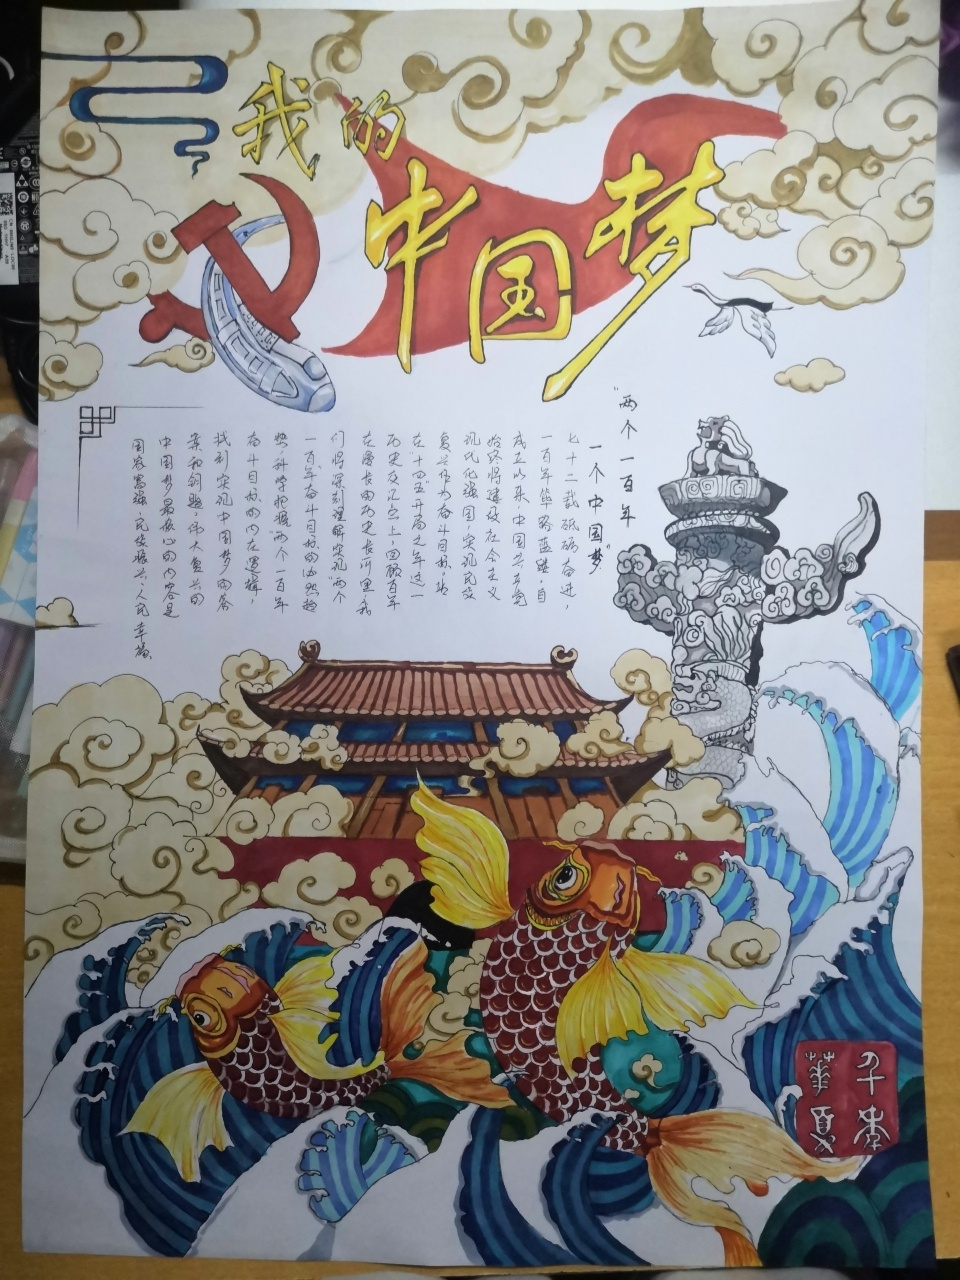 我的
中国梦
"两个一百年
一个中国梦"
七十二载砥砺奋进，
一百年筚路蓝缕，自
成立以来，中国共产党
始终将建设社会主义
现代化强国，实现民族
复兴作为奋斗目标，站
在"十四五"开局之年这一
历史交汇点上，回顾百年
在漫长的历史长河里，我
们将深刻理解实现"两个
一百年"奋斗目标的必然趋
势，科学把握两个一百年
奋斗目标的内在逻辑，
找到实现中国梦的答
案和钥匙。伟大复兴的
中国梦最核心的内容是
国家富强、民族振兴、人民幸福。
千年
华夏